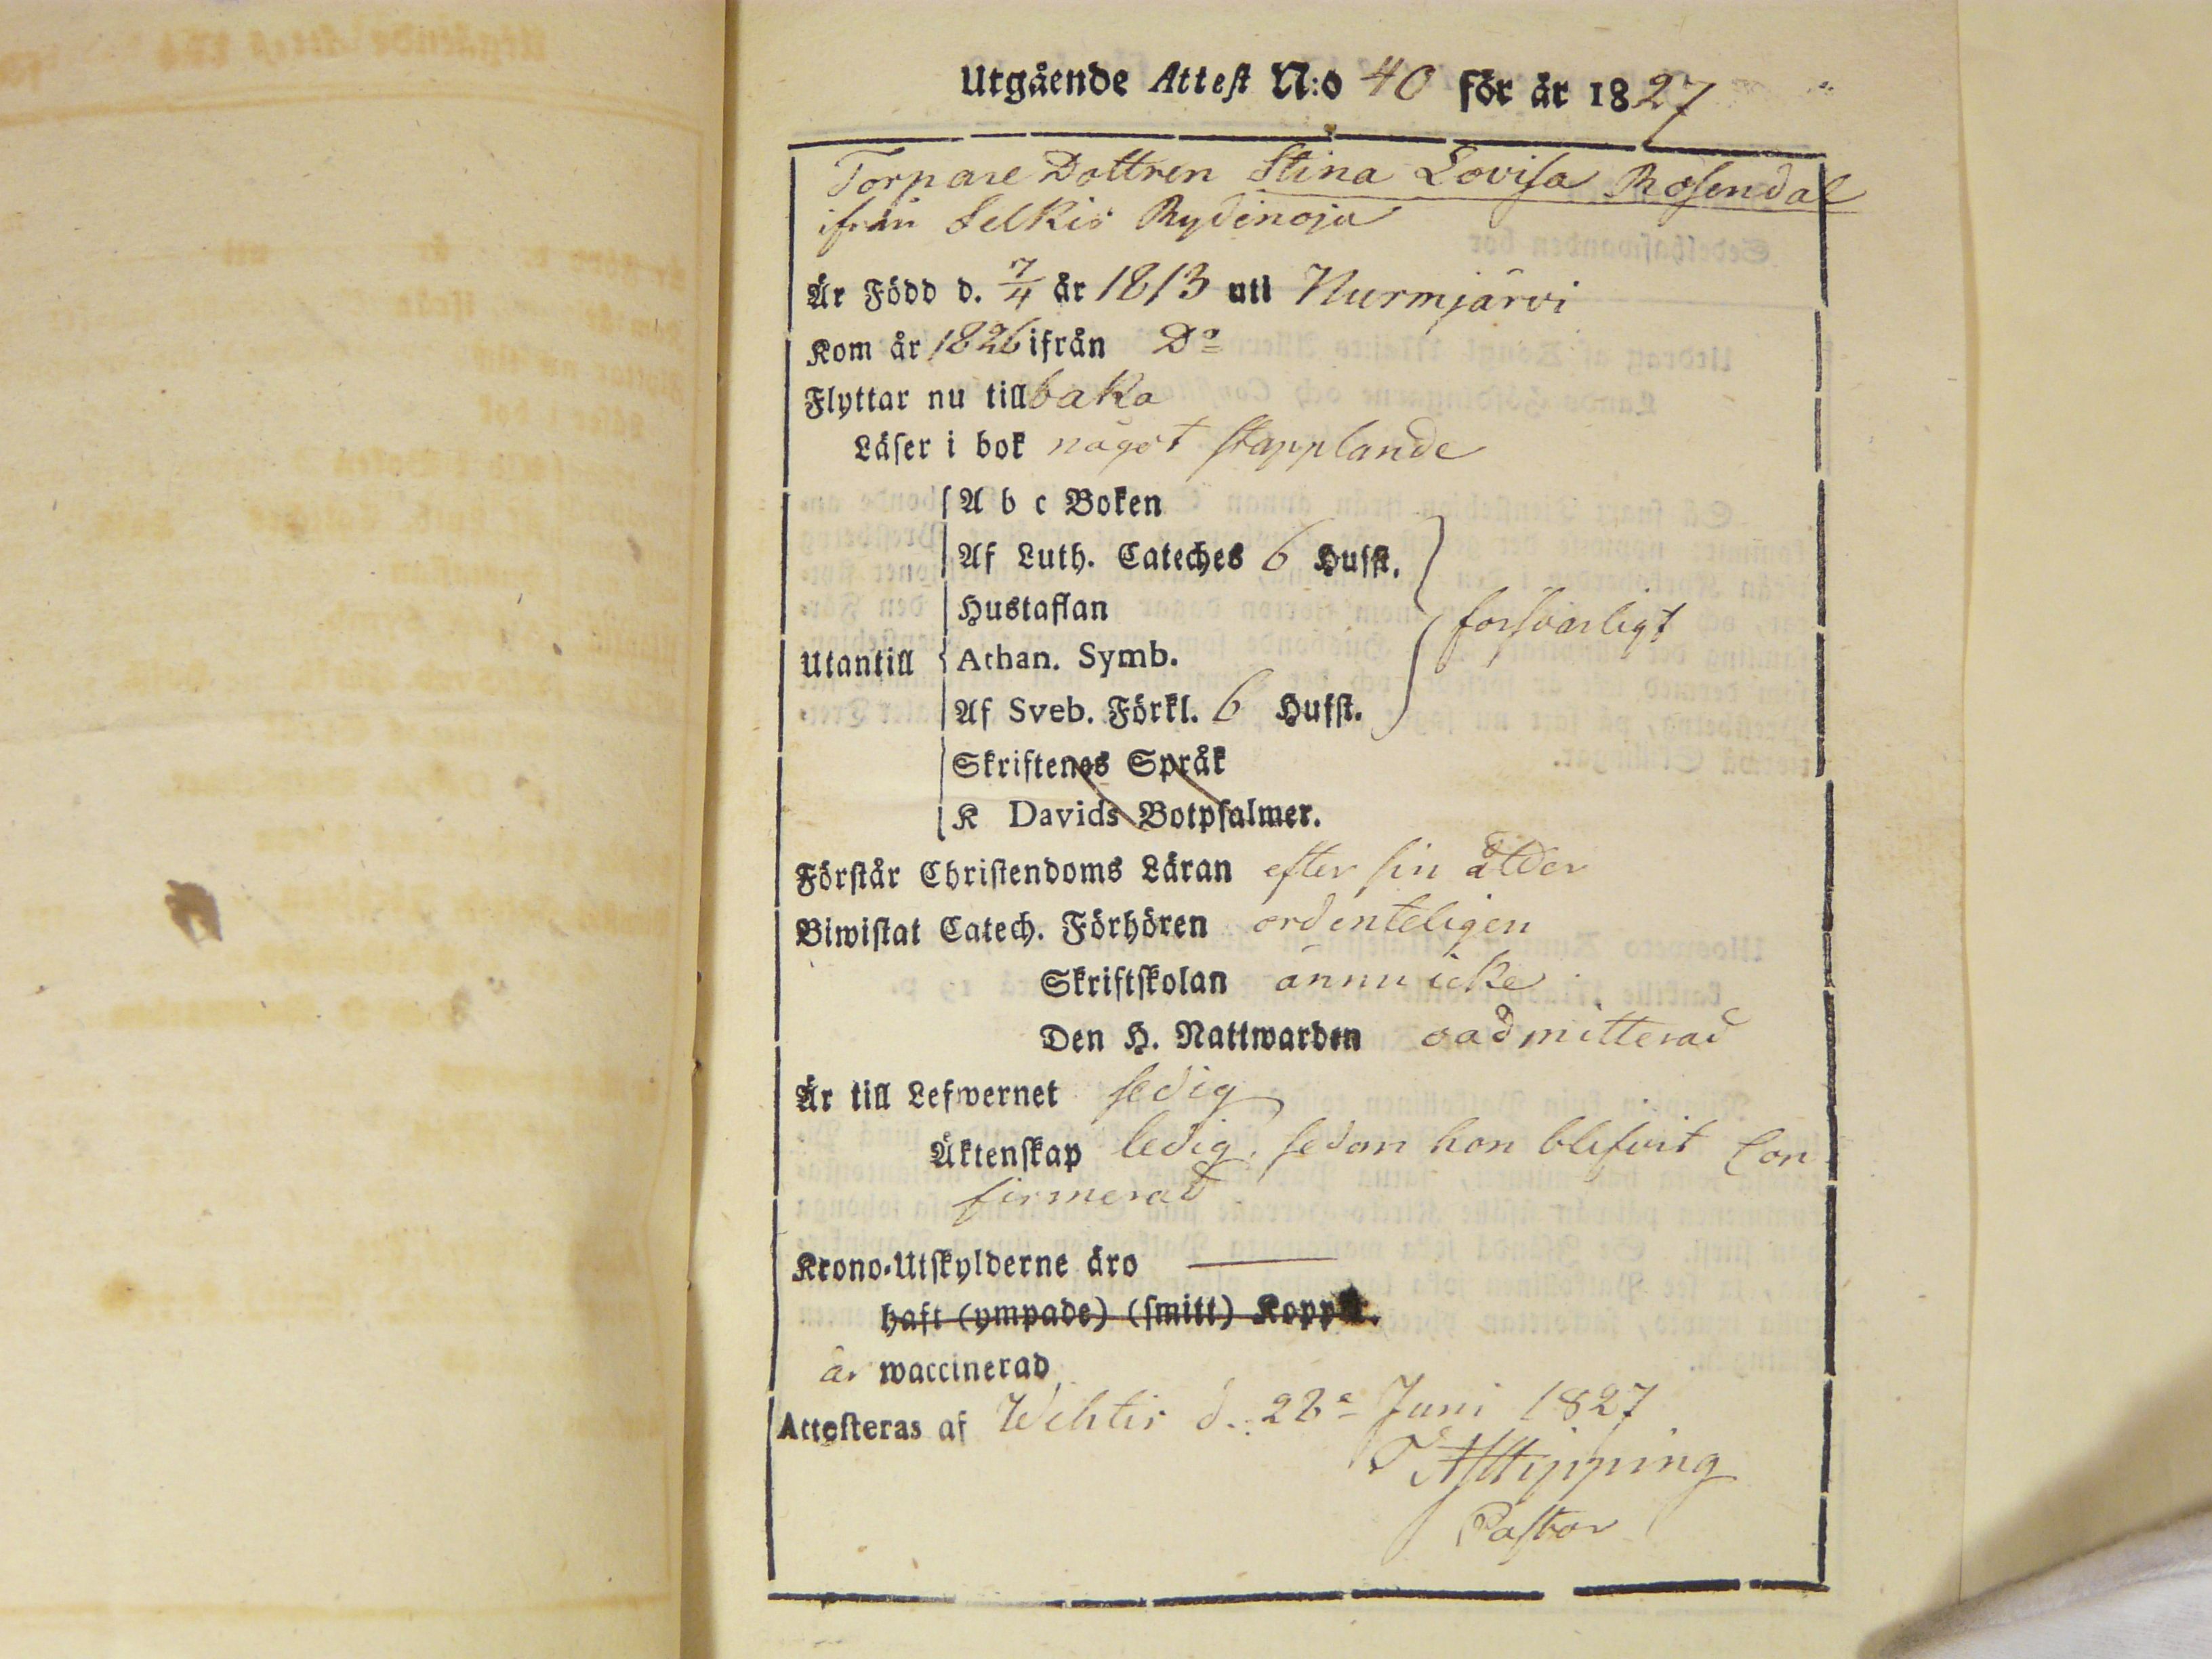 Utgående Attest N:o 40 för år 1827
Torpare Dottren Stina Lovisa Rosendal
ifrån Selkis Rydinoja
Är Född d. 7/4 år 1813 uti Nurmjärvi
Kom år 1826 ifrån Do
Flyttar nu tillbaka
Läser i bok något stapplande
A b c Boken
Af Luth. Cateches 6 Hufst.
Hustaflan
försvarligt
Utantill
Athan. Symb.
Af Sveb. Förkl. 6 Hufst.
Skriftenes Språk
K Davids Botpsalmer.
Förstår Christendoms Läran efter sin ålder
Biwistat Catech. Förhören ordenteligen
Skriftskolan ännu icke
Den H. Nattwarden oadmitterad
Är till Lefwernet sedig
Äktenskap ledig, sedan hon blifvit Con
firmerad
Krono-Utskylderne äro
haft (ympade) (smitt) Koppor.
är waccinerad
Attesteras af Wichtis d. 28e Juni 1827
Pastor